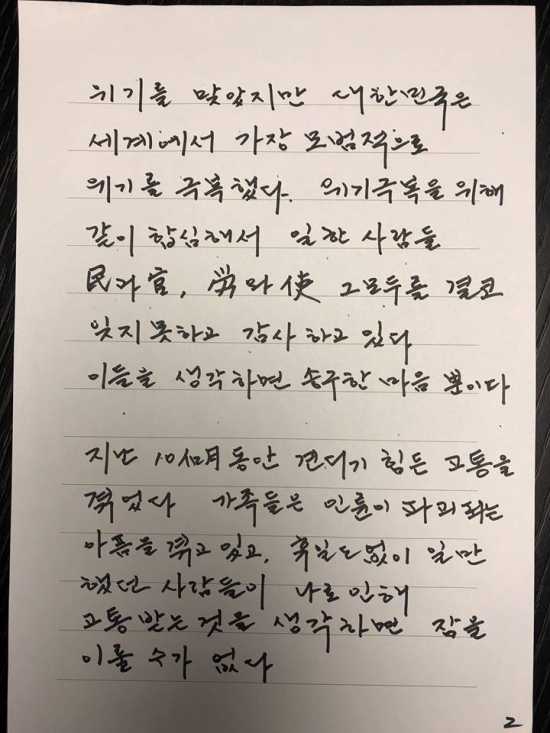 위기를 맞았지만 대한민국은
세계에서 가장 모범적으로
위기를 극복했다. 위기극복을 위해
같이 합심해서 일한 사람들
民과 官, 労와 使 그 모두를 결코
잊지못하고 감사하고 있다
이들을 생각하면 송구한 마음 뿐이다
지난 10個月 동안 견디기 힘든 고통을
겪었다 가족들은 인륜이 파괴되는
아픔을 겪고 있고, 휴일도 없이 일만
했던 사람들이 나로 인해
고통받는 것을 생각하면 잠을
이룰 수가 없다
2